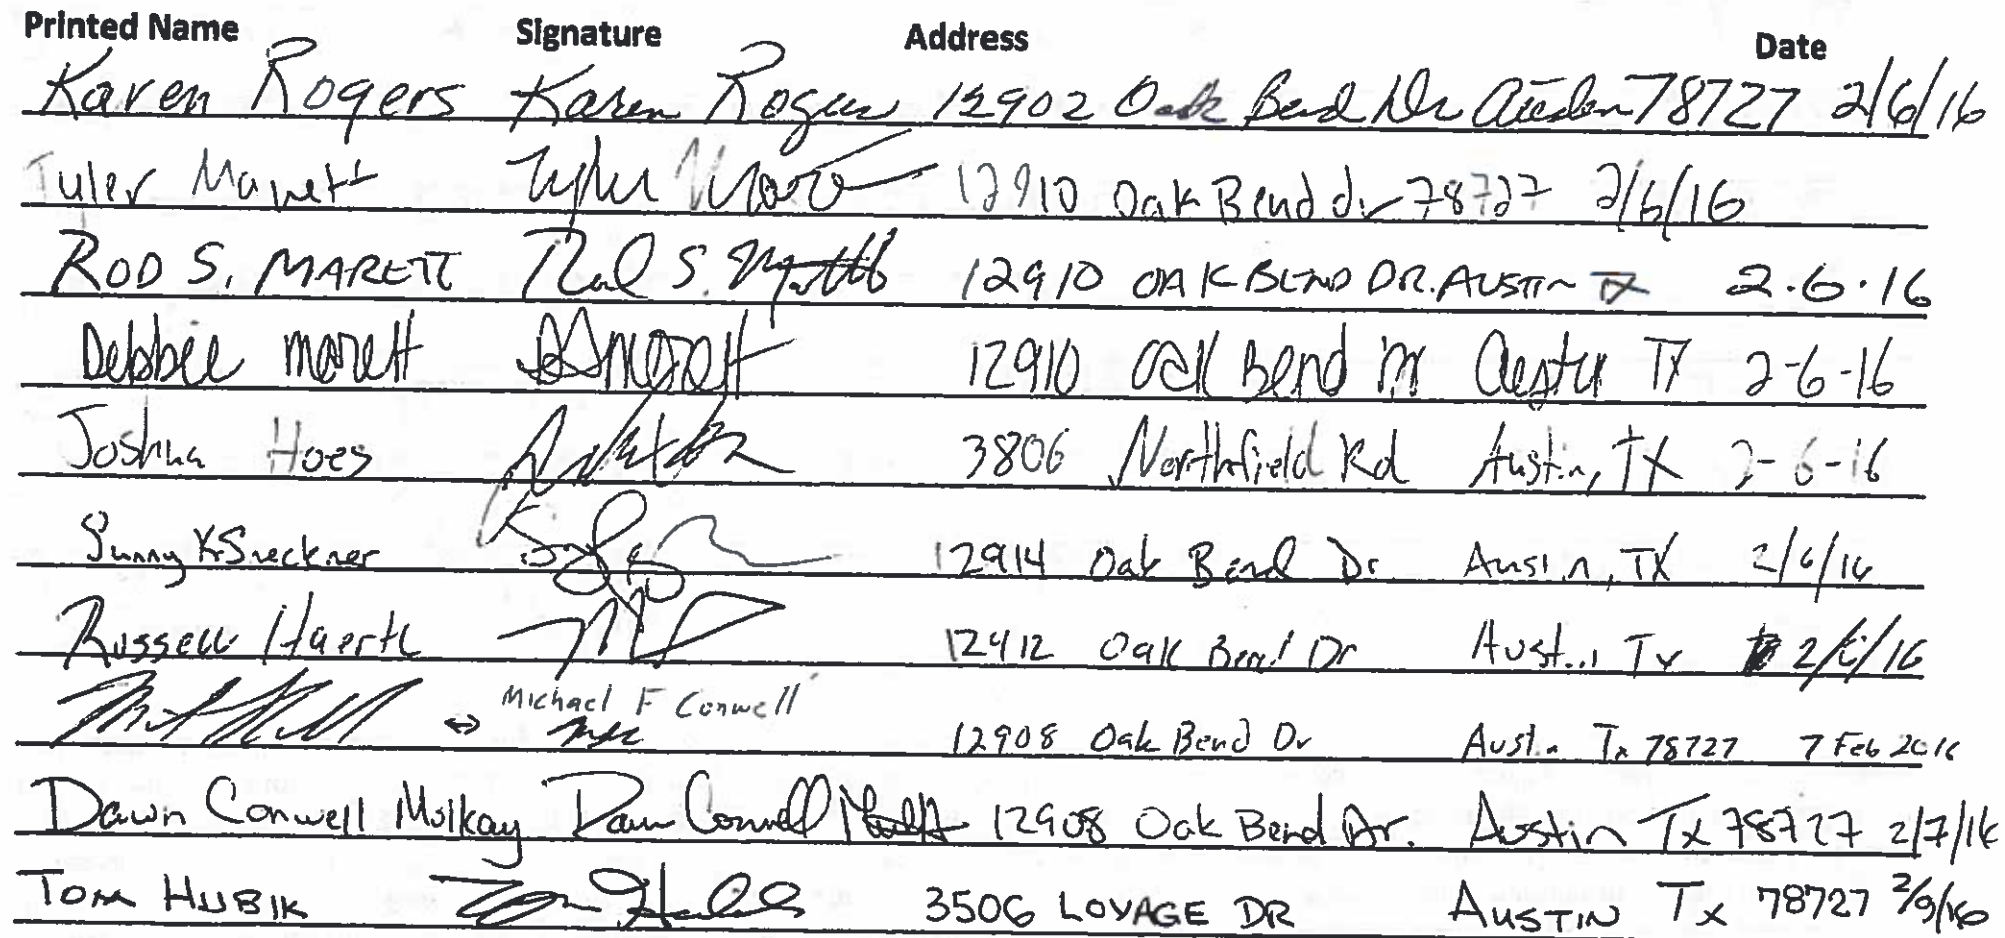 Printed Name Signature Address Date
Karen Rogers Karen Rogers 12902 Oak Bend Dr Austin 78727 2/6/16
Tyler Marett Tyler 12910 Oak Bend dr 78727 2/6/16
ROD S. MARETT Rod S. 12910 OAK BEND DR. AUSTIN TX 2.6.16
Debbie marett 12910 Oak Bend Dr Austin TX 2-6-16
Joshua Hoes 3806 Northfield Rd Austin, TX 2-6-16
Sunny K Sneckner 12914 Oak Bend Dr Austin, TX 2/6/16
Russell Haertl 12912 Oak Bend Dr Austin Tx 2/6/16
Michael F Conwell 12908 Oak Bend Dr Austin Tx 78727 7 Feb 2016
Dawn Conwell Mulkay Dawn Conwell 12908 Oak Bend Dr. Austin Tx 78727 2/7/16
TOM HUBIK 3506 LOVAGE DR AUSTIN Tx 78727 2/9/16